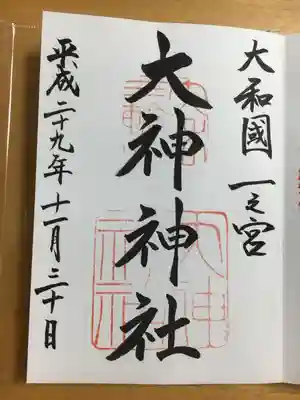 大和國 一之宮
大神神社
平成二十九年十一月三十日